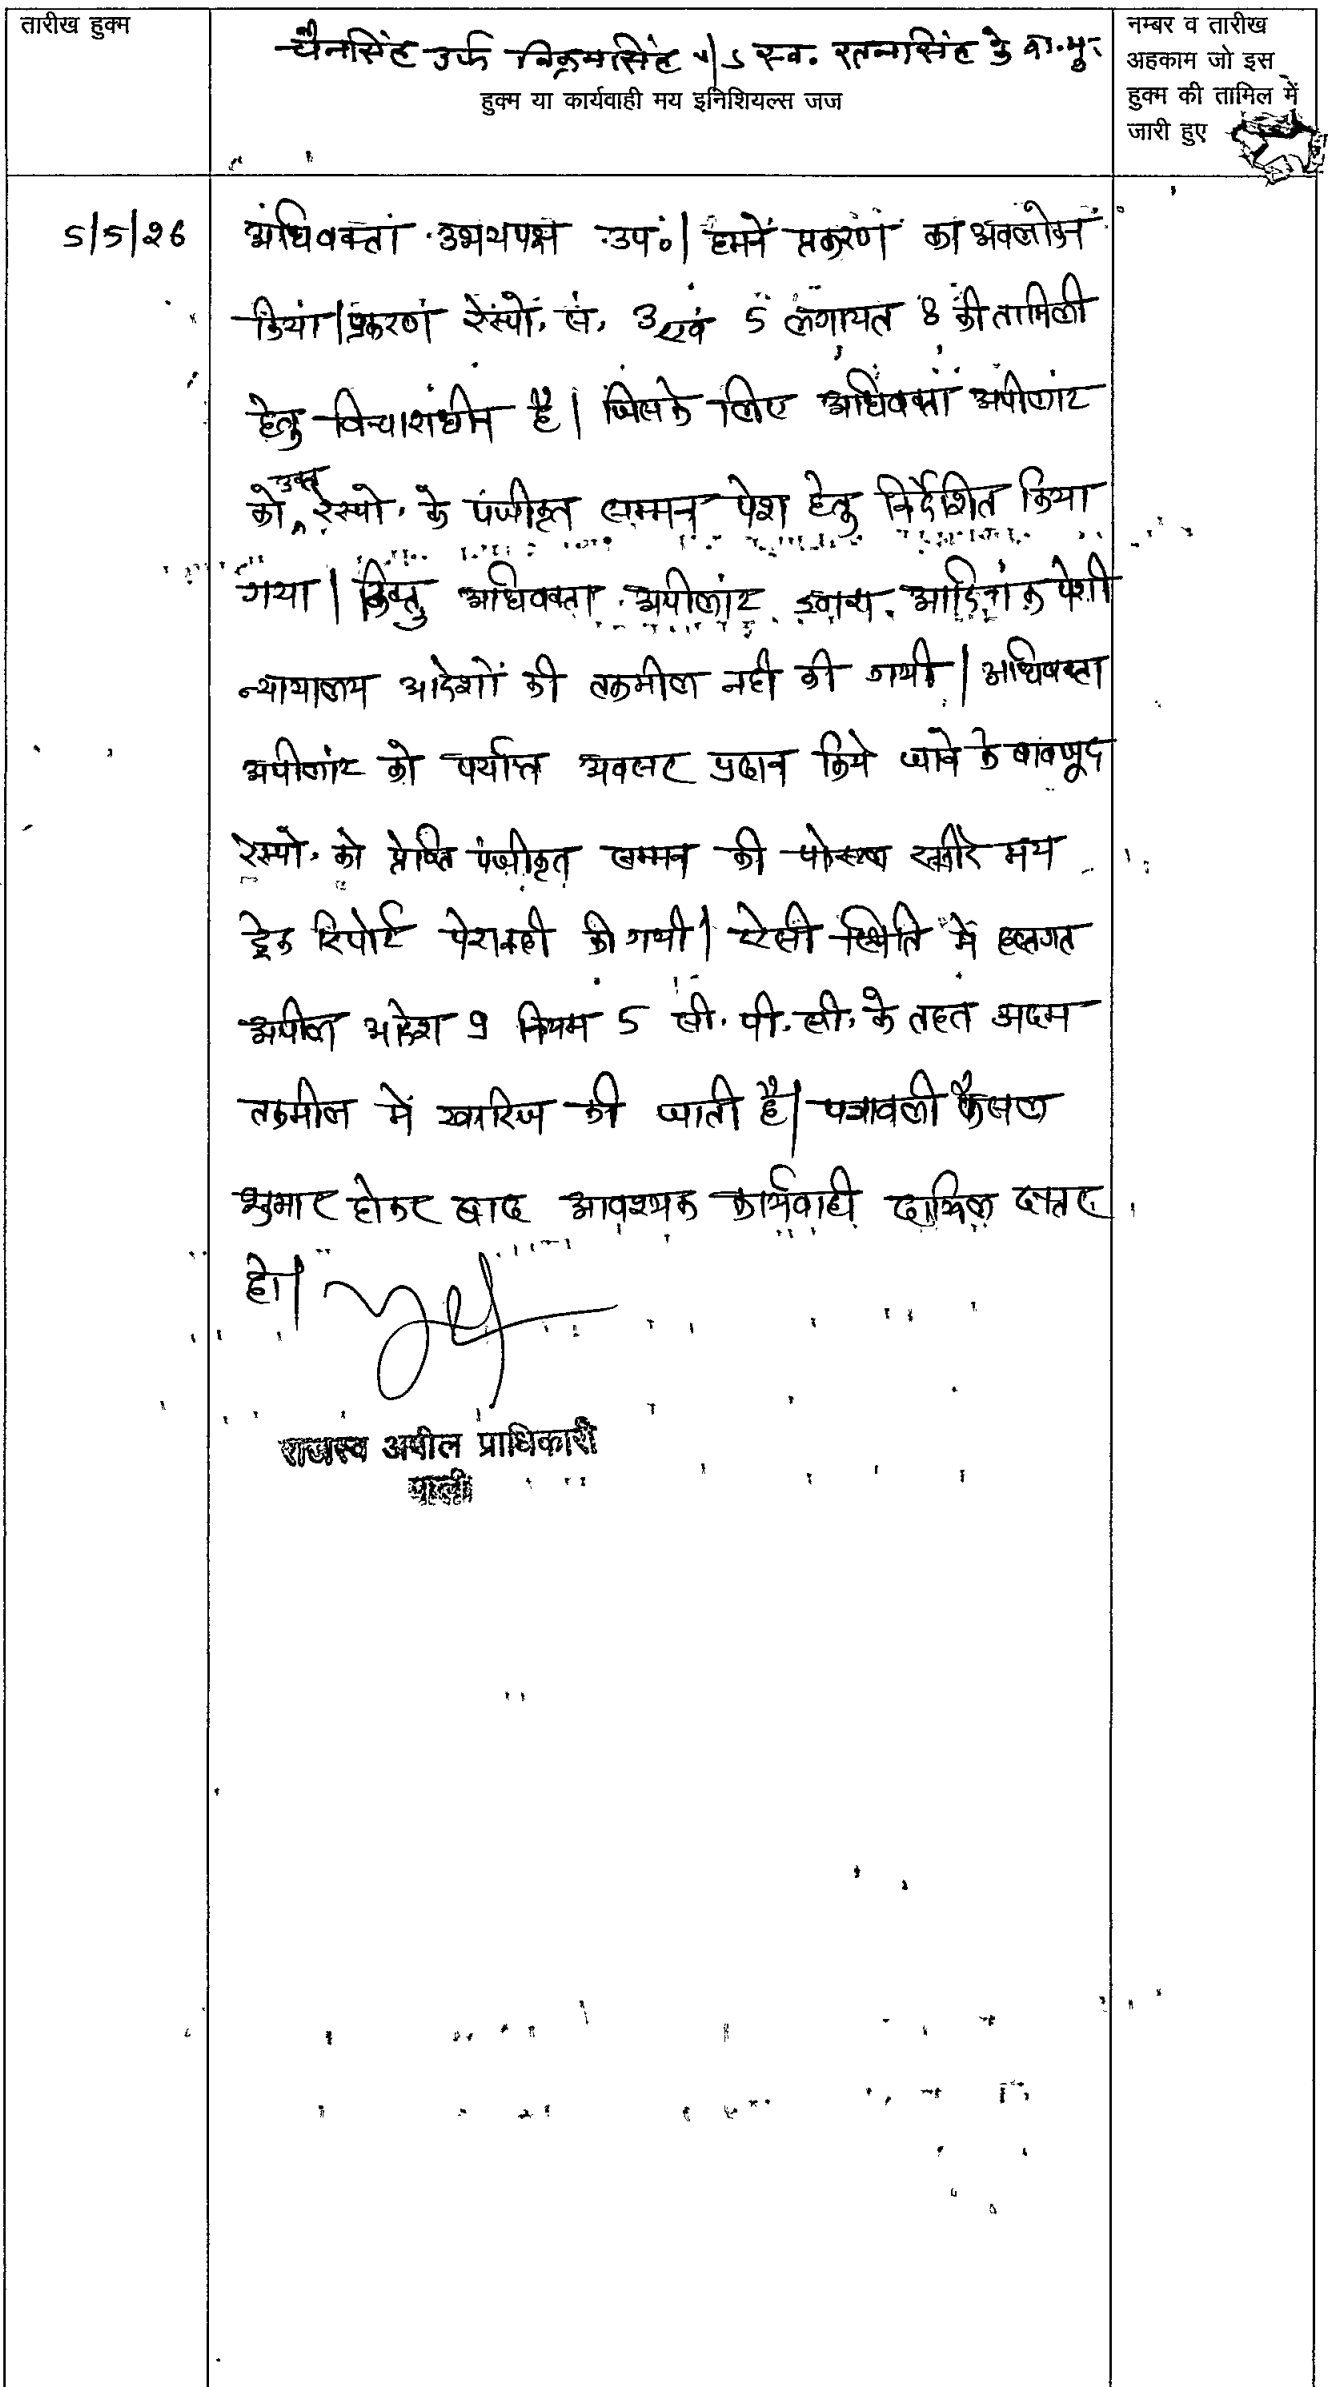 तारीख हुक्म
चैनसिंह उर्फ विक्रमसिंह v/s स्व. रतनसिंह के का.मु.
हुक्म या कार्यवाही मय इनिशियल्स जज
नम्बर व तारीख
अहकाम जो इस
हुक्म की तामिल में
जारी हुए
5/5/26
अधिवक्ता उभयपक्ष उप०। हमने प्रकरण का अवलोकन
किया। प्रकरण रेस्पो. सं. 3 एवं 5 लगायत 8 की तामिली
हेतु विचाराधीन है। जिसके लिए अधिवक्ता अपीलांट
को उक्त रेस्पो. के पंजीकृत सम्मन पेश हेतु निर्देशित किया
गया। किन्तु अधिवक्ता अपीलांट द्वारा आदिनांक पेशी
न्यायालय आदेशों की तकमील नही की गयी। अधिवक्ता
अपीलांट को पर्याप्त अवसर प्रदान किये जाने के बावजूद
रेस्पो. को प्रेषित पंजीकृत सम्मन की पोस्टल रसीदे मय
ट्रेक रिपोर्ट पेश नही की गयी। ऐसी स्थिति में हस्तगत
अपील आदेश 9 नियम 5 सी.पी.सी. के तहत अदम
तकमील में खारिज की जाती है। पत्रावली फैसल
शुमार होकर बाद आवश्यक कार्यवाही दाखिल दफ्तर
हो।
राजस्व अपील प्राधिकारी
पाली